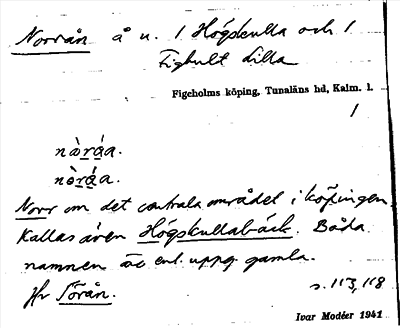 Norrån å u. 1 Högskulla och 1
Fighult Lilla
Figeholms köping, Tunaläns hd, Kalm. l.
1
nòr̲å̲a.
nò̲r̲å̲a.
Norr om det centrala området i köpingen
Kallas även Högskullabäck. Båda
namnen äro enl. uppg. gamla.
Jfr Sörån.
s. 113, 118
Ivar Modéer 1941